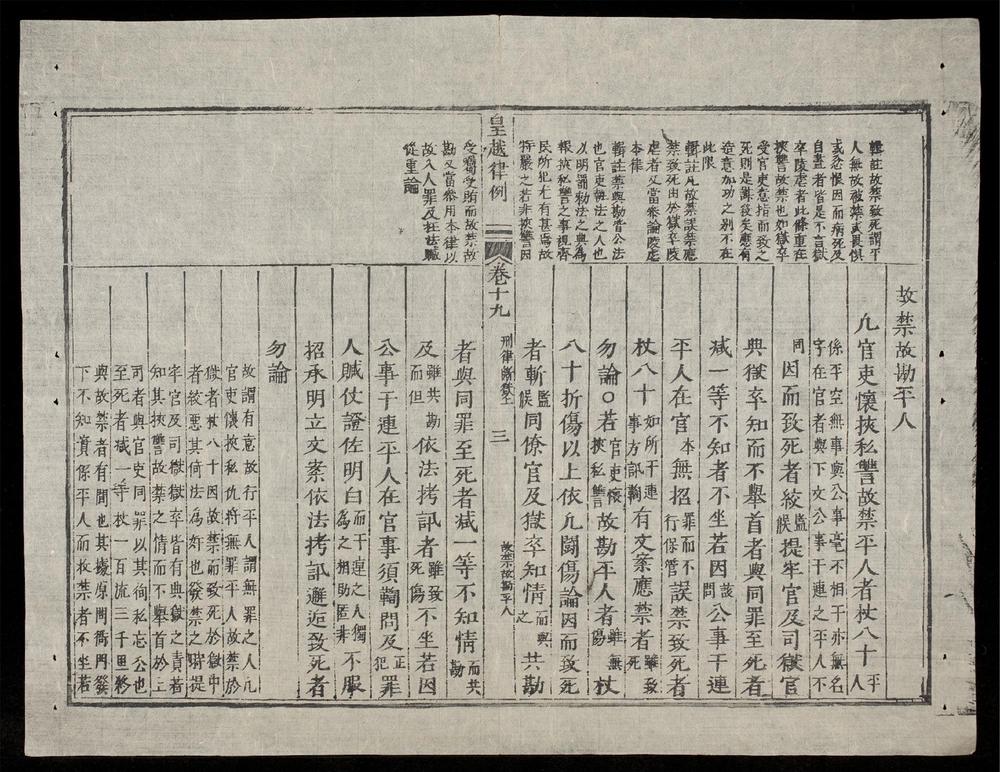 輯註故禁致死謂平
人無故被禁或畏懼
或忿恨因而病死及
自盡者皆是不言獄
卒陵虐者此條重在
挾讐故禁也如獄卒
受官吏意指而致之
死則是謀殺矣應有
造意加功之別不在
此限
輯註凡故禁誤禁應
禁致死由於獄卒陵
虐者又當參論陵虐
本律
輯註禁與勘皆公法
也官吏執法之人也
以明謂勑法之典為
報挾私讐之事視齊
民所犯尤有甚焉故
特嚴之若非挾讐因
故禁故勘平人
凢官吏懷挾私讐故禁平人者杖八十平人
係平空無事與公事毫不相干亦無名
字在官者與下文公事干連之平人不
同因而致死者絞監候提牢官及司獄官
典獄卒知而不舉首者與同罪至死者
减一等不知者不坐若因該問公事干連
平人在官本無招罪而不行保管誤禁致死者
杖八十如所干連事方訊鞫有文案應禁者雖致死
勿論○若官吏懷挾私讐故勘平人者雖無傷杖
八十折傷以上依凢鬪傷論因而致死
者斬監候同僚官及獄卒知情而與之共勘
皇越律例
卷十九
刑律斷獄上
三
故禁故勘平人
受囑受賄而故禁故
勘又當參用本律以
故入人罪及枉法贓
從重論
者與同罪至死者减一等不知情而共勘
及雖共勘而但依法拷訊者雖致死傷不坐若因
公事干連平人在官事須鞫問及正犯罪
人贓仗證佐明白而干連之人獨為之相助匿非不服
招承明立文案依法拷訊邂逅致死者
勿論
故謂有意故行平人謂無罪之人凢
官吏懷挾私仇將無罪平人故禁於
獄者杖八十因故禁而致死於獄中
者絞惡其倚法為奸也發禁之時提
牢官及司獄卒皆有典獄之責若
知其挾讐故禁之情而不舉首於上
司者與官吏同罪以其徇私忘公也
至死者减一等杖一百流三千里矜
與故禁者有間也其擾原問衙門發
下不知實係平人而故禁者不坐若